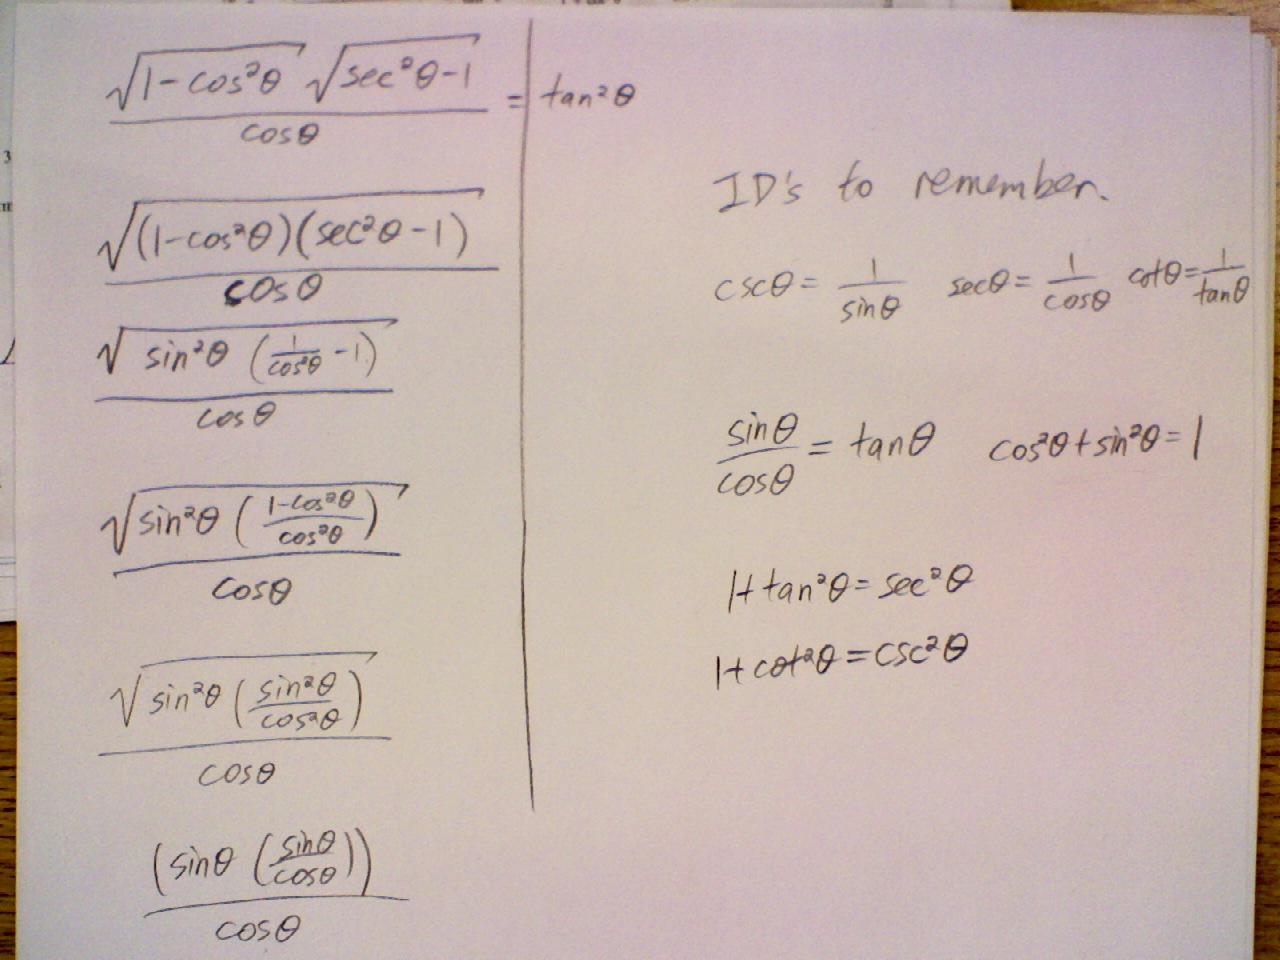 √(1-cos²θ) √(sec²θ-1) / cosθ = tan²θ
√((1-cos²θ)(sec²θ-1)) / cosθ
√(sin²θ (1/cos²θ -1)) / cosθ
√(sin²θ ((1-cos²θ)/cos²θ)) / cosθ
√(sin²θ (sin²θ/cos²θ)) / cosθ
(sinθ (sinθ/cosθ)) / cosθ
ID's to remember.
cscθ = 1/sinθ secθ = 1/cosθ cotθ = 1/tanθ
sinθ/cosθ = tanθ cos²θ + sin²θ = 1
1+tan²θ = sec²θ
1+cot²θ = csc²θ